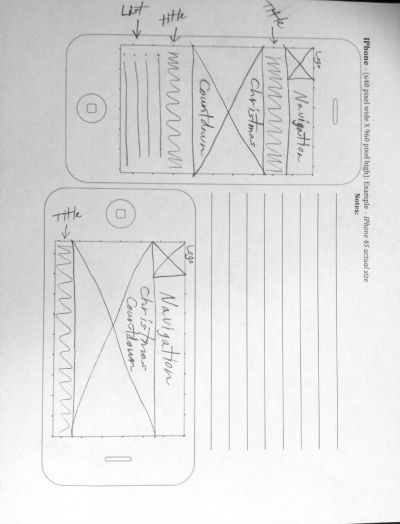 IPhone – (640 pixel wide X 960 pixel high): Example – iPhone 4S actual size
Notes:
Logo
Navigation
Title
Christmas
Countdown
Title
List
Logo
Navigation
Christmas
Countdown
Title